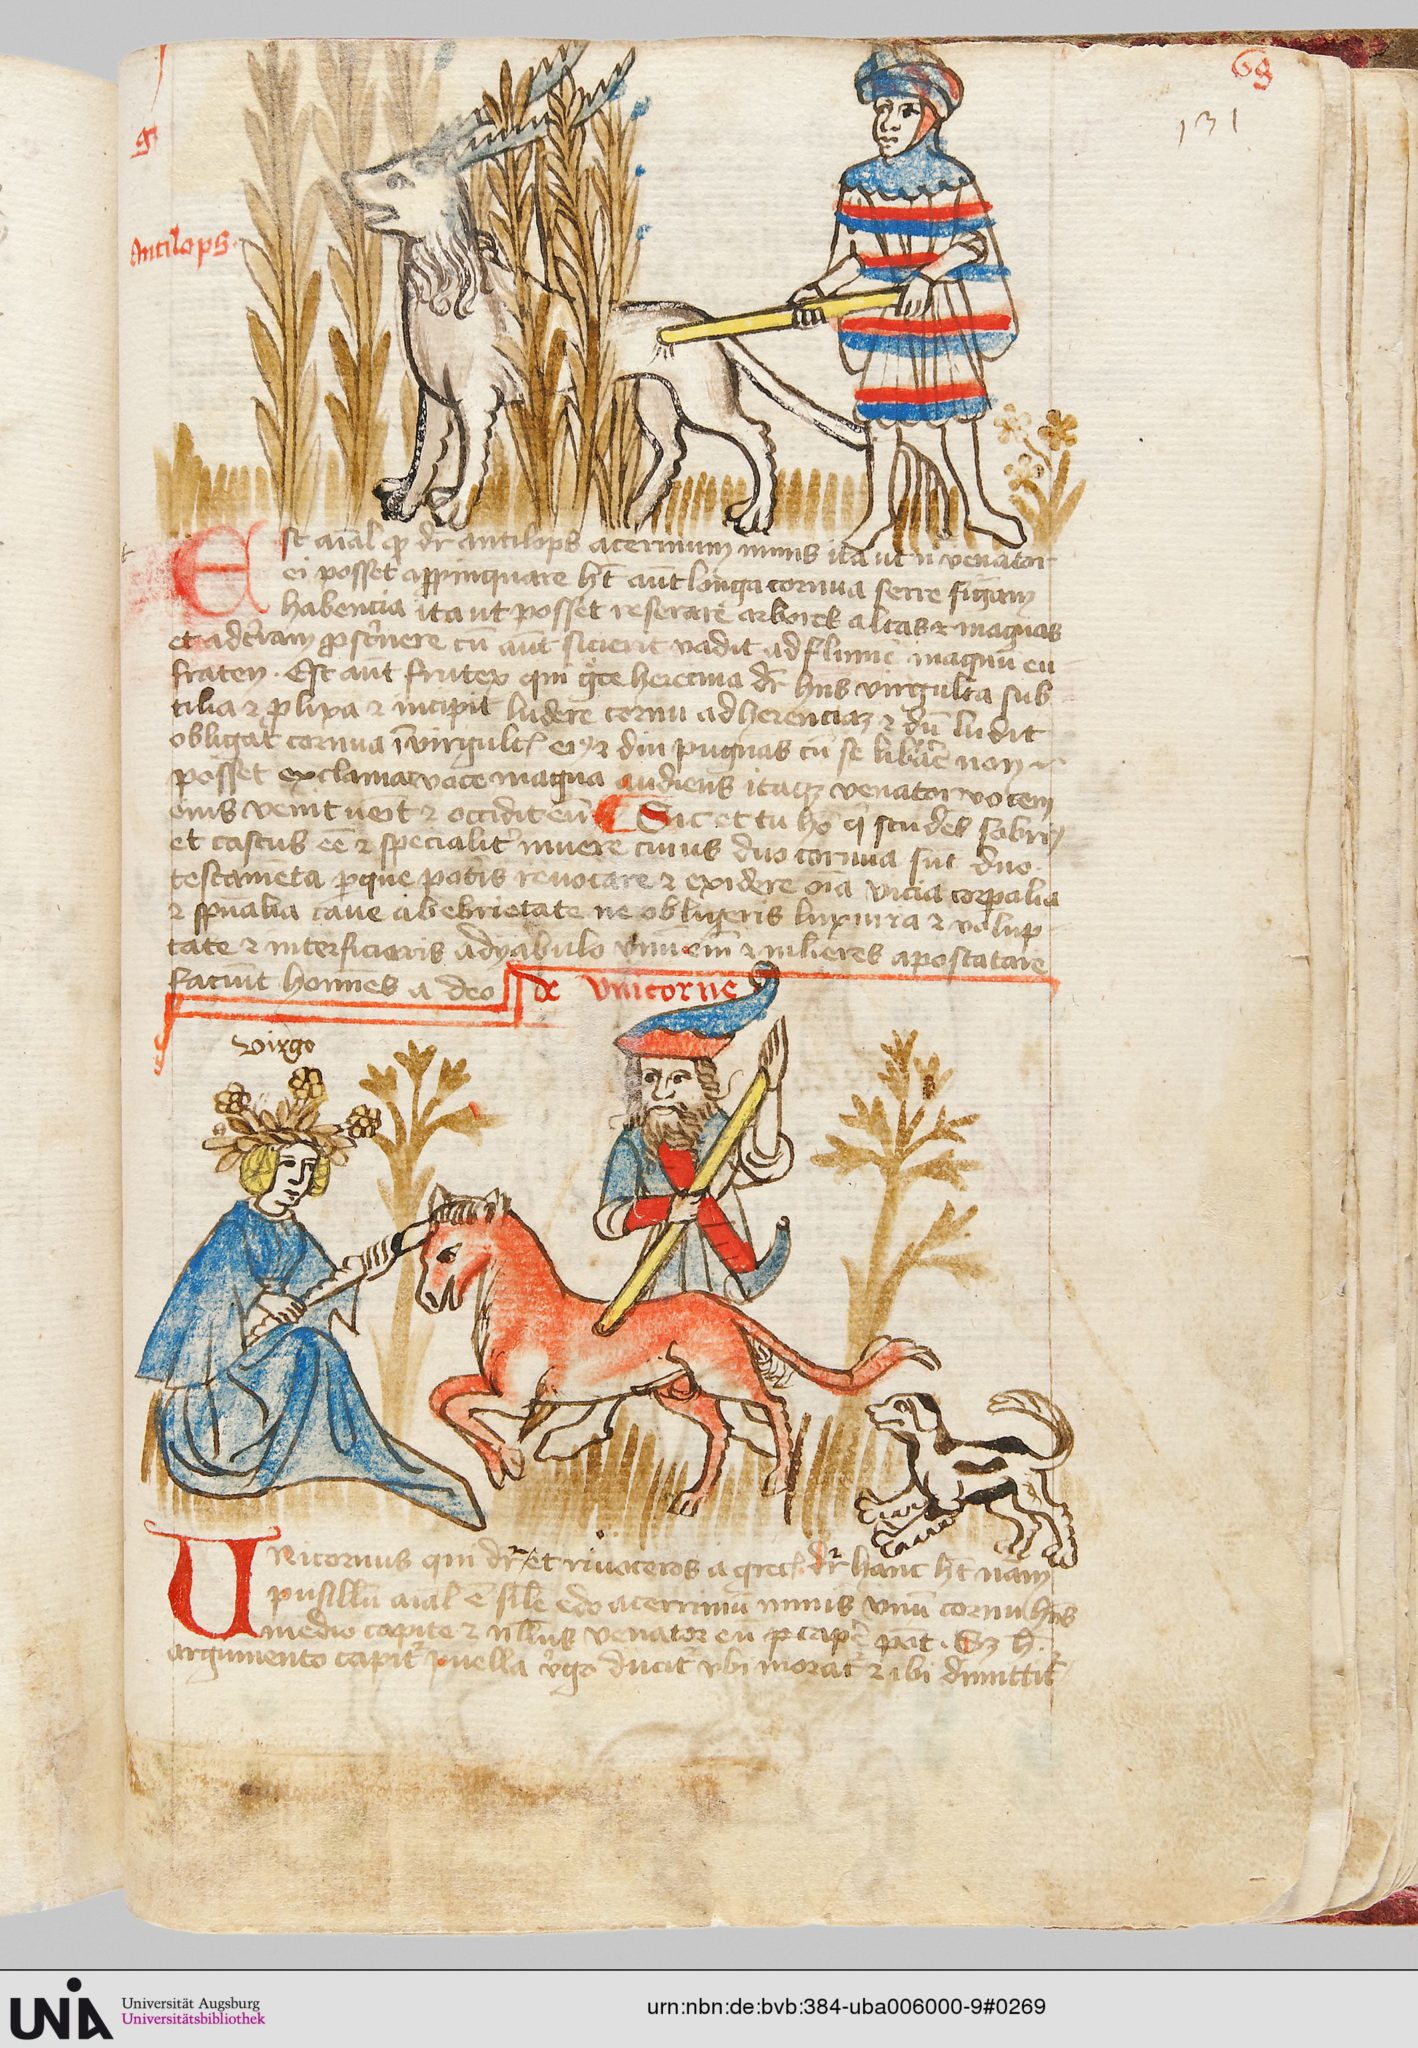 68
131
Antilops
Est aīal qd dr antilops acerrimum nimis ita ut n venator
ei posset appinquare ht aūt longa cornua serre figām
habencia ita ut posset reserare arbores altas et magnas
et ad terram psternere cū aūt sicierit vadit ad flumē magnū eu
fraten. Est aut frutex qui gce herecina dr hns virgulta sub
tilia et plixa et incipit ludere cornu adherencia et dū ludit
obligat cornua ī virgult et diu pugnas cū se libare non
posset exclamat voce magna audiens itaq venator vocem
eius venit et occidit eū Sic et tu ho qi studes sobri
et castus eē et specialitr vivere cuius duo cornua sūt duo
testamēta per que potis revocare et exidere oīa vicia corpalia
et spūalia cave ab ebrietate ne obligeris luxuria et volup
tate et interficiaris a dyabulo vinū enī et mlieres apostatare
faciūt homines a deo de Unicorne
Virgo
Unicornus qui dr et rinoceros a grec dr hanc ht nām
pusillū aīal ē sile edo acerrimū nimis unū cornu hns
medio capite et nllus venator eū capē pāt. Sz h
argumento capitr puella vgo ducitr ubi moratr et ibi dimittitr
UNIA Universität Augsburg
Universitätsbibliothek
urn:nbn:de:bvb:384-uba006000-9#0269